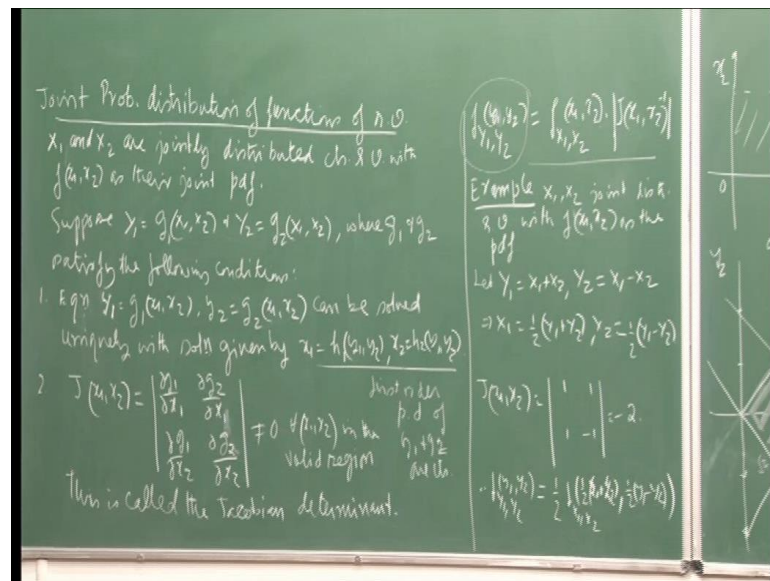 Joint Prob. distribution of functions of r.v.
X₁ and X₂ are jointly distributed cts. r.v. with
f(x₁,x₂) as their joint pdf.
Suppose Y₁ = g₁(X₁,X₂) & Y₂ = g₂(X₁,X₂), where g₁ & g₂
satisfy the following conditions:
1. Eqn y₁ = g₁(x₁,x₂), y₂ = g₂(x₁,x₂) can be solved
uniquely with soln given by x₁ = h₁(y₁,y₂), x₂ = h₂(y₁,y₂)
2 J(x₁,x₂) = | ∂g₁/∂x₁ ∂g₂/∂x₁ |
| ∂g₁/∂x₂ ∂g₂/∂x₂ | ≠ 0 ∀(x₁,x₂) in the
valid region
first order
p.d of
g₁ & g₂
are cts.
This is called the Jacobian determinant.
f_{Y₁,Y₂}(y₁,y₂) = f_{X₁,X₂}(x₁,x₂) · |J(x₁,x₂)⁻¹|
Example X₁, X₂ joint distr.
r.v with f(x₁,x₂) as the
pdf
Let Y₁ = X₁+X₂, Y₂ = X₁-X₂
⇒ X₁ = ½(Y₁+Y₂), X₂ = ½(Y₁-Y₂)
J(x₁,x₂) = | 1 1 |
| 1 -1 | = -2.
∴ f_{Y₁,Y₂}(y₁,y₂) = ½ f_{X₁,X₂}(½(y₁+y₂), ½(y₁-y₂))
x₂
0
y₂